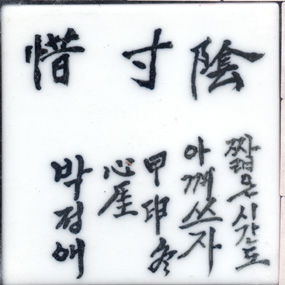 惜寸陰
짧은시간도
아껴쓰자
甲申冬
心厓
박정애